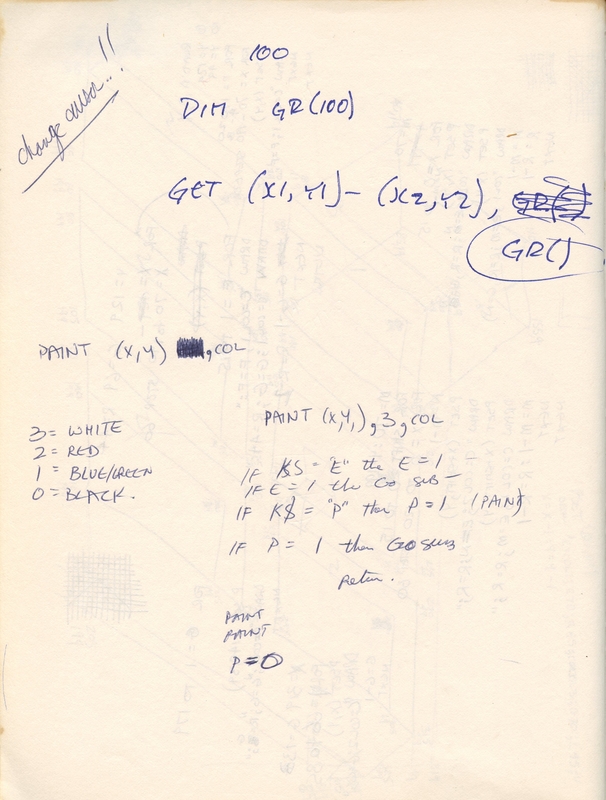 change cursor..!!
100
DIM GR(100)
GET (X1,Y1)-(X2,Y2),
GR()
PAINT (X,Y) ,COL
PAINT (X,Y,),3,COL
3= WHITE
2= RED
1= BLUE/GREEN
0= BLACK.
IF K$ = "E" the E=1
IF E=1 the Go sub-
IF K$ = "P" then P=1 (PAINT)
IF P=1 then GOSUB
Return.
PAINT
PAINT
P=0